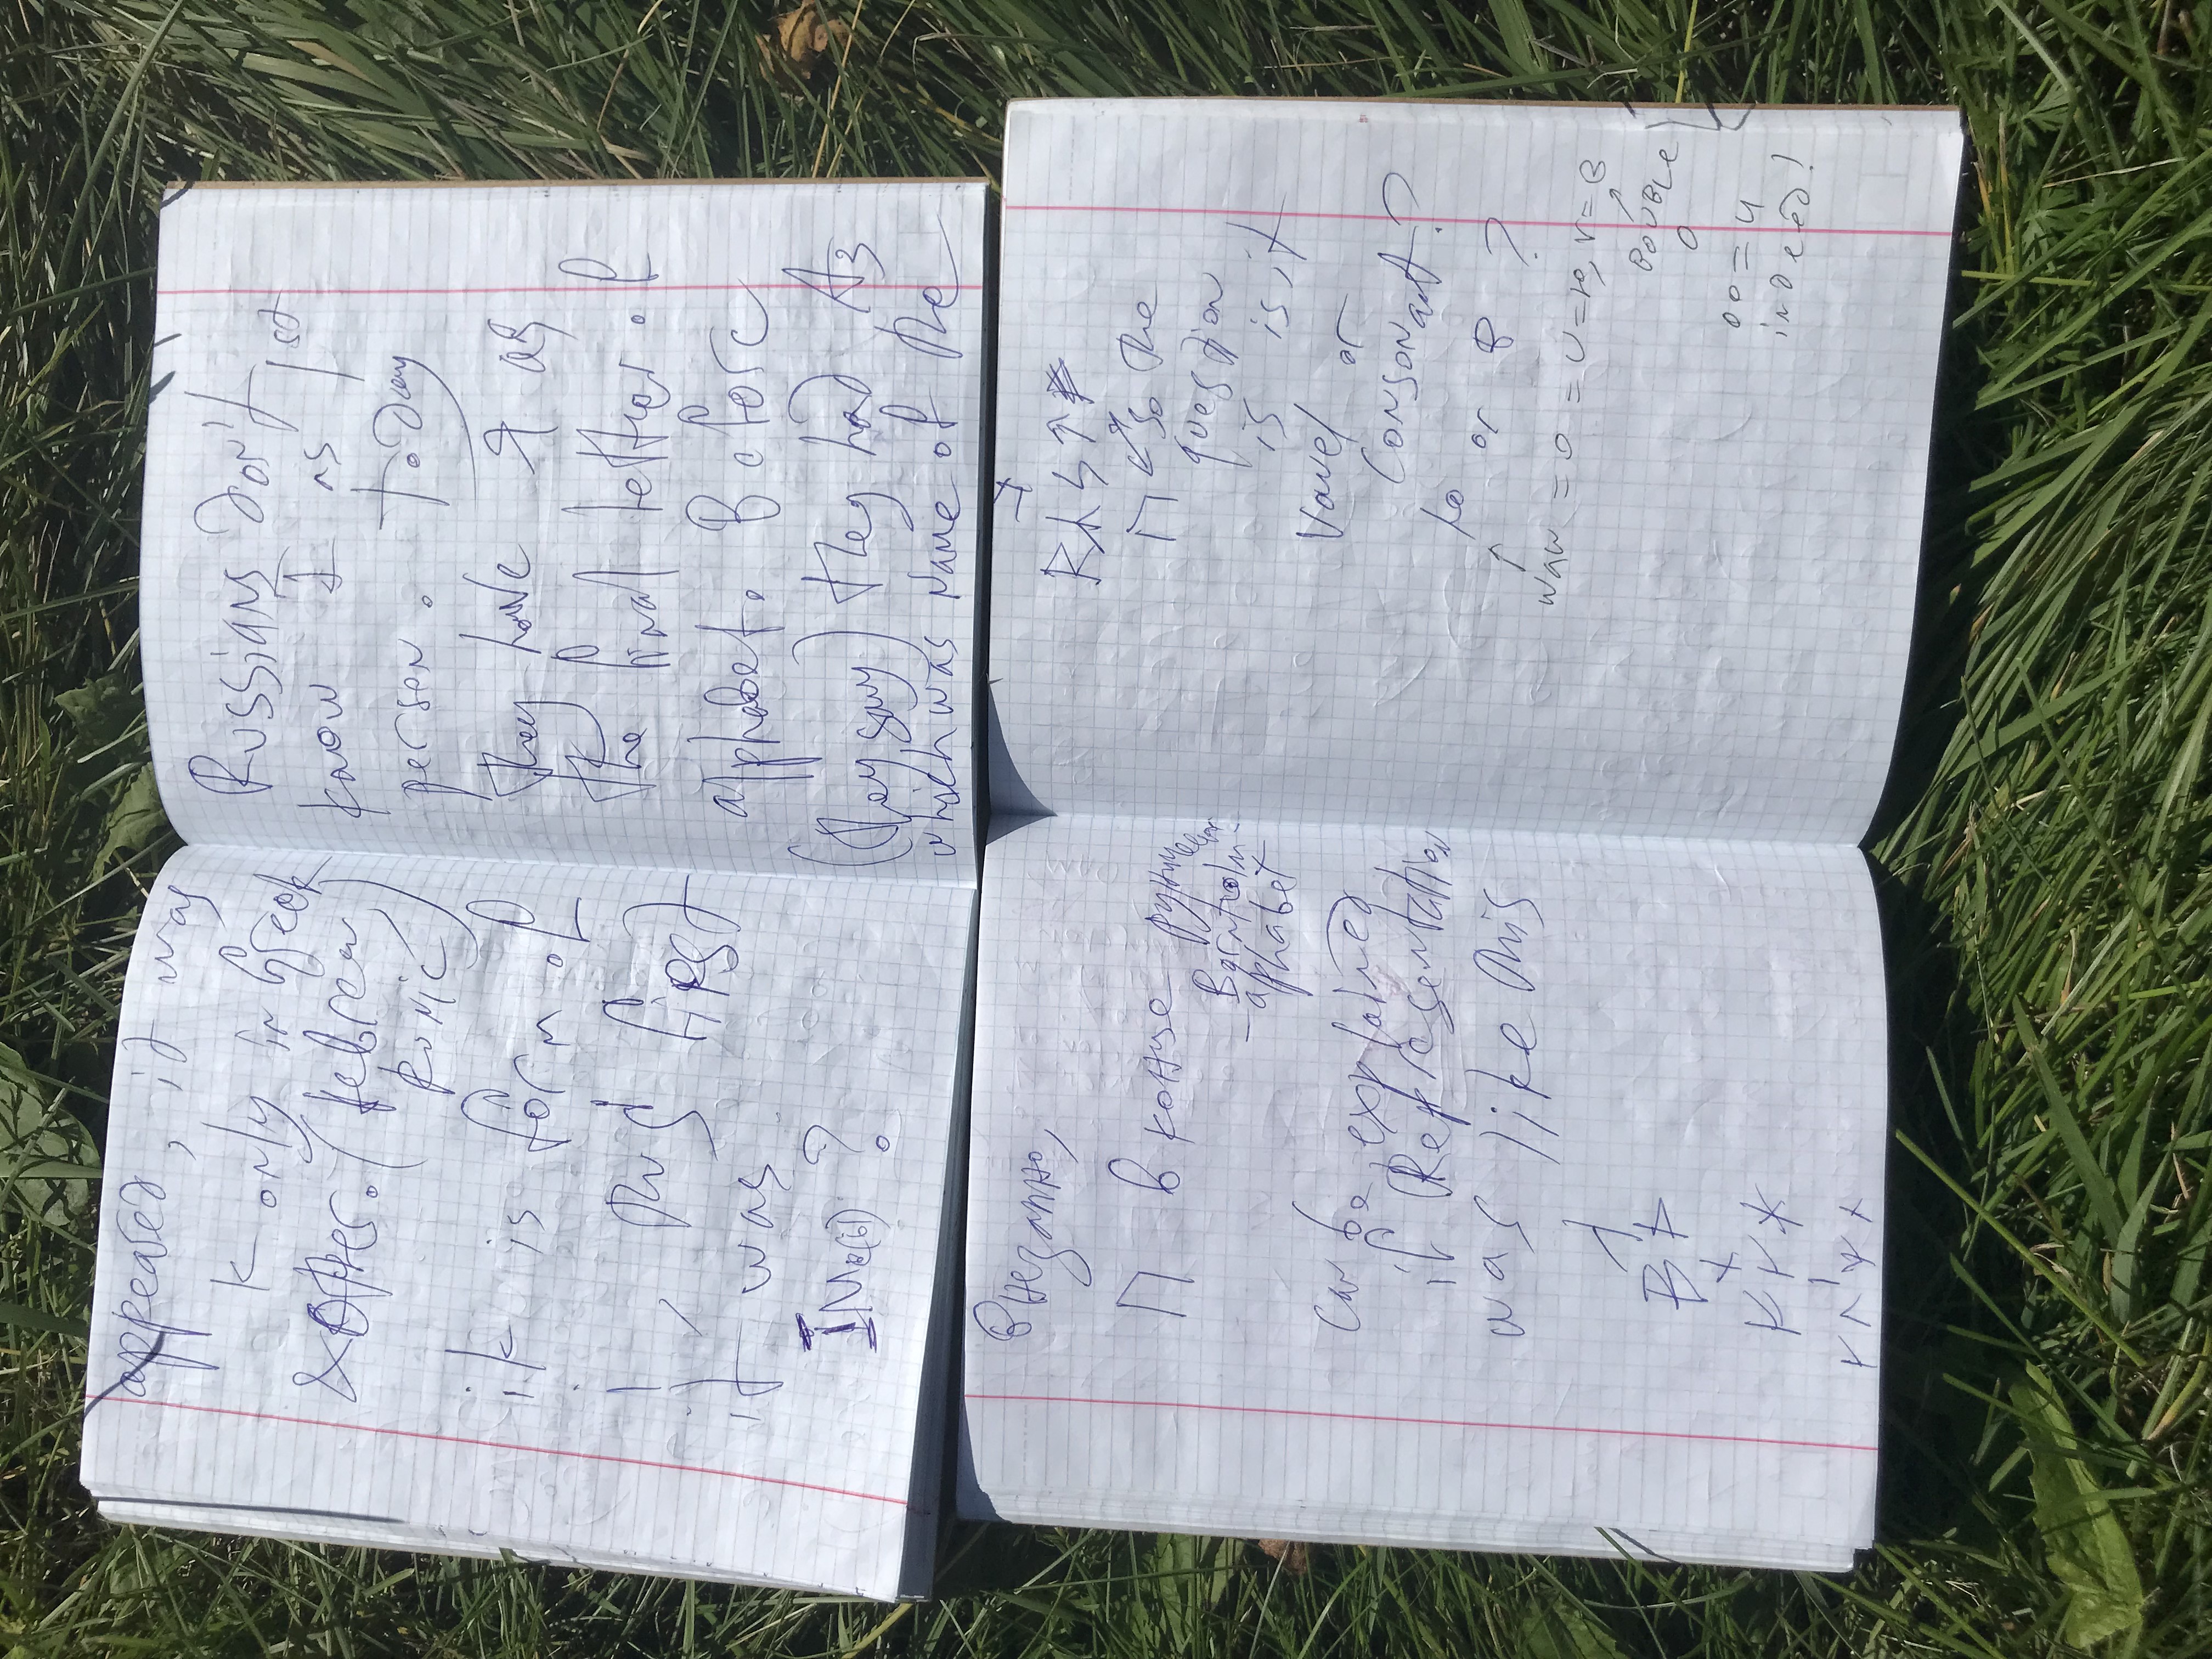 appeared, it was
K only in Greek
& Other. (Hebrew,
Runic)
ik is form of
I, thus first
it was
IMe(бl) ?
Russians don't
know I as 1st
person. today
they have Я as
the final letter of
alphabet. Before
(they say) they had Аз
which was name of the
Внезапно,
П в конце
Bornholm-
alphabet
can be explained
if Representation
was like this
so the
question
is is it
Vowel or
Consonant?
ю or В ?
waw = o = U = ю, v = B
DOUBLE
O
oo = u
indeed!